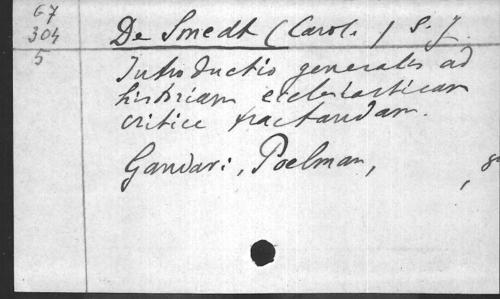 67
304
5
De Smedt (Carol.) S. J.
Introductio generalis ad
historiam ecclesiasticam
critice tractandam.
Gandavi, Poelman,
, 8